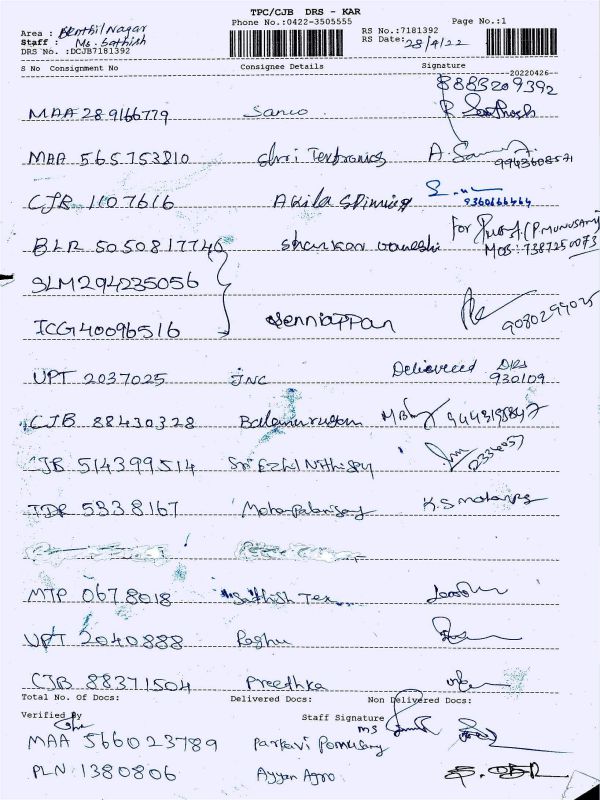 TPC/CJB DRS - KAR
Phone No.:0422-3505555 Page No.:1
Area : Nagar
Staff : Ms. Sathish
DRS No. :DCJB7181392
RS No.:7181392
RS Date:28/4/22
S No Consignment No Consignee Details Signature
20220426
8883209392
MAA 289166779 Sanco R Santhosh
MAA 565753810 Shri Textronics A. 9943608571
CJB 1107616 Akila Spinning 9360666464
BLR 5050817746 Shankar For (P.MUNUSAMY)
MOB: 7387250073
SLM294235056
ICG40096516 Senniappan 9080294025
UPT 2037025 JNC Delivered DRS
930109
CJB 88430328 Balamurugan
CJB 514399514 Sri Ezhil
5338167 K.S
MTP 0678018 Sathish Tex
UPT 2040888 Raghu
CJB 88371504 Preethka
Total No. of Docs: Delivered Docs: Non Delivered Docs:
Verified By Staff Signature
MS
MAA 566023789 Parkavi Ponnusamy
PLN 1380806 Ayyan Agro